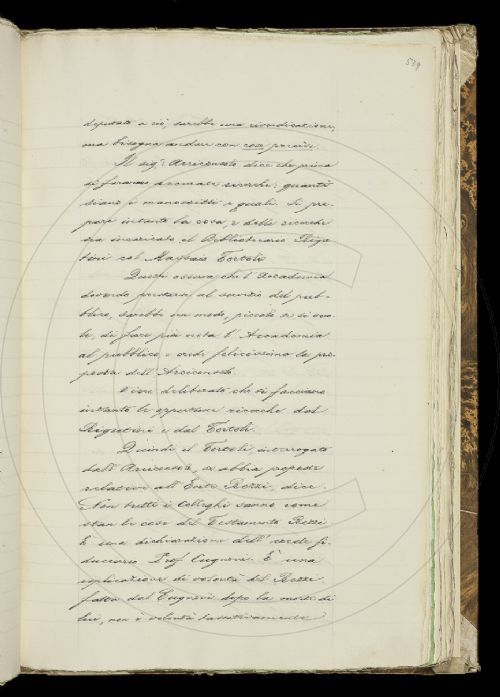 539
deputato a ciò, sarebbe una rivendicazione,
ma bisogna andare con cose precise.
Il sig.r Arciconsolo dice che prima
si faranno accurate ricerche: quanti
siano i manoscritti e quali. Si pre-
pari intanto la cosa, e delle ricerche
sia incaricato il Bibliotecario Riga
tini col Massaio Tortoli.
Questi osserva che l'Accademia
dovendo prestarsi al servizio del pub-
blico, sarebbe un modo, piccolo se si vuo-
le, di fare più nota l'Accademia
al pubblico, e crede felicissima la pro-
posta dell'Arciconsolo.
Viene deliberato che si facciano
intanto le opportune ricerche dal
Rigutini e dal Tortoli.
Quindi il Tortoli, interrogato
dall'Arciconsolo, se abbia proposte
relative all'Ente Rezzi, dice:
Non tutti i Colleghi sanno come
stan le cose del Testamento Rezzi
È una dichiarazione dell'erede fi-
duciario Prof. Cugnoni. È una
esplicazione di volontà del Rezzi
fatta dal Cugnoni dopo la morte di
lui, non è volontà tassativamente